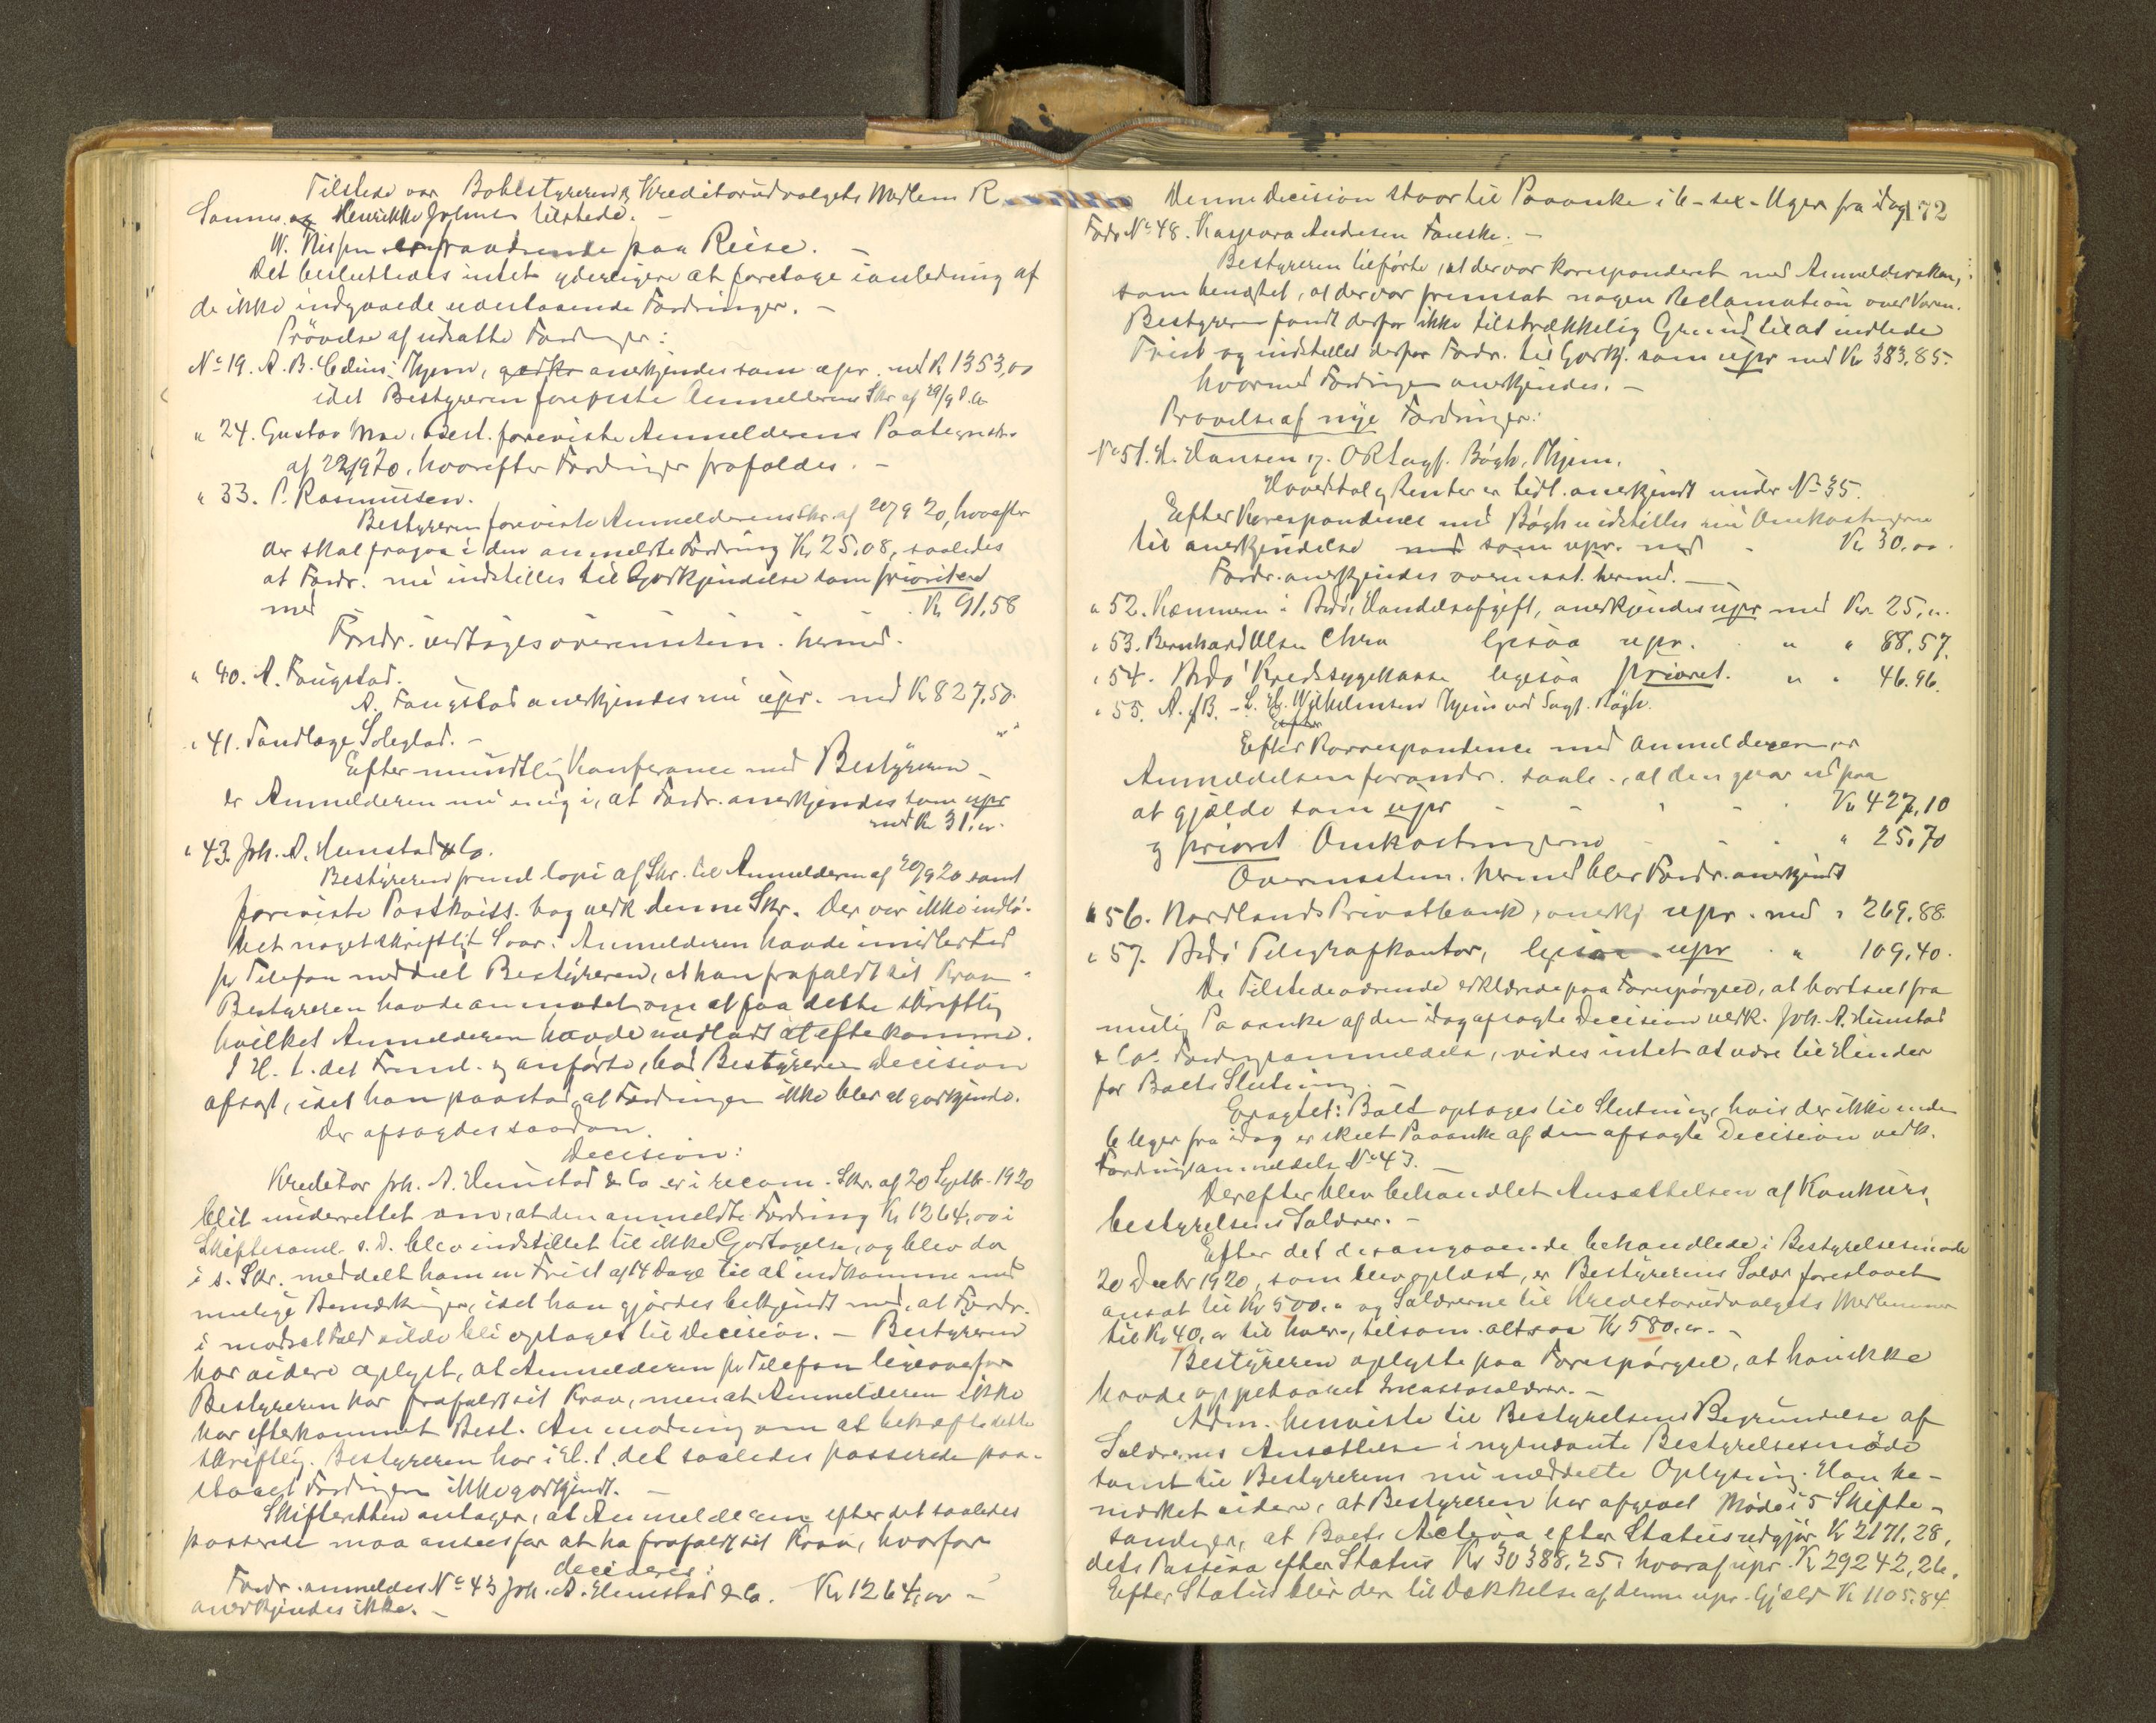 Tilstede var Bobestyreren, Kreditorudvalgets Medlem R
Sannes og Henrikke Johnsen tilstede. -
W. Nissen er fraværende paa Reise. -
Det besluttedes intet yderligere at foretage i anledning af
de ikke indgaaede udestaaende Fordringer. -
Prøvelse af udsatte Fordringer:
No 19. A. B. Thjem, godkj anerkjendes som upr. med K 1353,00
idet Bestyreren foreviste Anmelderens Skr. af 29/9 d.a.
" 24. Gustav Moe, Best. foreviste Anmelderens Paategnskr.
af 22/9 20, hvorefter Fordringen frafaldes. -
" 33. P. Rasmussen.
Bestyreren foreviste Anmelderens Skr. af 20/9 20, hvorefter
der skal fragaa i den anmeldte Fordring Kr 25,08, saaledes
at Fordr. nu indstilles til Godkjendelse som prioritered
med Kr 91,58
Fordr. vedtages overensstem. hermed.
" 40. A. Fougstad.
A. Fougstad anerkjendes nu upr. med Kr 827,50.
" 41. Tandlæge Soleglad. -
Efter mundtlig Konferance med Bestyreren
er Anmelderen nu enig i, at Fordr. anerkjendes som upr
med Kr 31,00.
" 43. Joh. A. Hunstad & Co.
Bestyreren freml. Copi af Skr. til Anmelderen af 20/9 20 samt
foreviste Postkvitt. bog vedk denne Skr. Der var ikke indlø-
bet noget skriftligt Svar. Anmelderen havde imidlertid
pr Telefon meddelt Bestyreren, at han frafaldt sit Krav.
Bestyreren havde anmodet om at faa dette skriftlig
hvilket Anmelderen havde undladt at efterkomme.
I H. t. det Freml. og anførte, bad Bestyreren Decision
afsagt, idet han paastod, at Fordringen ikke blev at godkjende.
Der afsagdes saadan
Decision:
Kreditor Joh. A. Hunstad & Co er i recom. Skr. af 20 Septbr. 1920
blit underrettet om, at den anmeldte Fordring Kr 1264,00 i
Skiftesaml. s. D. blev indstillet til ikke Godtagelse, og blev da
i s. Skr. meddelt ham en Frist af 14 Dage til at indkomme med
mulige Bemærkninger, idet han gjordes bekjendt med, at Fordr.
i modsat Fald vilde bli optaget til Decision. - Bestyreren
har videre oplyst, at Anmelderen pr Telefon ligeoverfor
Bestyreren har frafaldt sit Krav, men at Anmelderen ikke
har efterkommet Best. Anmodning om at bekræfte dette
skriftlig. Bestyreren har i H. t. det saaledes passerede paa-
staaet Fordringen ikke godkjendt. -
Skifteretten antager, at Anmelderen efter det saaledes
passerede maa ansees for at ha frafaldt sit Krav, hvorfor
decideres:
Fordr. anmeldes No 43 Joh. A. Hunstad & Co. Kr 1264,00 -
anerkjendes ikke. -
Denne Decision staar til Paaanke i 6 - sex - Uger fra idag 172
Fordr No 48. Kaspara Andresen Fauske. -
Bestyreren tilførte, at der var korresponderet med Anmeldersken,
som benægtet, at der var fremsat nogen Reclamation over Varen.
Bestyreren fandt derfor ikke tilstrækkelig Grund til at indlede
Tvist og indstillet derfor Fordr. til Godkj. som upr med Kr 383,85.
hvormed Fordringen anerkjendes. -
Prøvelse af nye Fordringer:
No 51. H. Hansen v. ORsagf. Bøgh, Thjem.
Hovedstol og Renter er tidl. anerkjendt under No 35.
Efter Korespondence med Bøgh indstilles nu Omkostningerne
til anerkjendelse med som upr. med - Kr 30.00.
Fordr. anerkjendes overensst. hermed. -
" 52. Kæmneren i Bodø, Handelsafgift, anerkjendes upr med Kr. 25,00.
" 53. Bernhard Olsen Chra ligesaa upr. " " 88,57.
" 54. Bodø Kredssygekasse ligesaa priorit. " " 46.96.
" 55. A. /B. - L. Hj. Wilhelmsen Thjem ved Sagf. Bøgh.
Efter
Efter Korrespondence med Anmelderen er
Anmeldelsen forandr. saal., at den gaar ud paa
at gjælde som upr - - - Kr 427,10
og priorit Omkostningerne - - " 25,70
Overensstem. hermed blev Fordr. anerkjendt
" 56. Nordlands Privatbank, anerkj upr. med " 269,88.
" 57. Bodø Telegrafkontor, ligesaa upr . " 109,40.
De Tilstedeværende erklærede paa Forespørgsel, at bortset fra
mulig Paaanke af den idag afsagte Decision vedk. Joh. A. Hunstad
& Co's Fordringsanmeldelse, vides intet at være til Hinder
for Boets Slutning. -
Eragtet: Boet optages til Slutning, hvis der ikke inden
6 Uger fra idag er skeet Paaanke af den afsagte Decision vedk.
Fordringsanmeldelse No 43. -
Derefter blev behandlet Ansættelsen af Konkurs
bestyrelsens Salærer. -
Efter det derangaaende behandlede i Bestyrelsesmøde
20 Decbr 1920, som blev oplæst, er Bestyrerens Salær foreslaaet
ansat til Kr 500,00 og Salærerne til Kreditorudvalgets Medlemmer
til Kr 40,00 til hver, tilsam. altsaa Kr 580,00. -
Bestyreren oplyste paa Forespørgsel, at han ikke
havde oppebaaret Incassosalærer. -
Adm. henviste til Bestyrelsens Begrundelse af
Salærernes Ansættelse i nysnævnte Bestyrelsesmøde
samt til Bestyrerens nu meddelte Oplysning. Han be-
mærket videre, at Bestyreren har afgivet Møde i 5 Skifte-
samlinger, at Boets Activa efter Status udgjør Kr 2171,28,
dets Passiva efter Status Kr 30388,25, hvoraf upr. Kr 29242,26.
Efter Status blir der til Dækkelse af denne upr. Gjæld Kr 1105,84